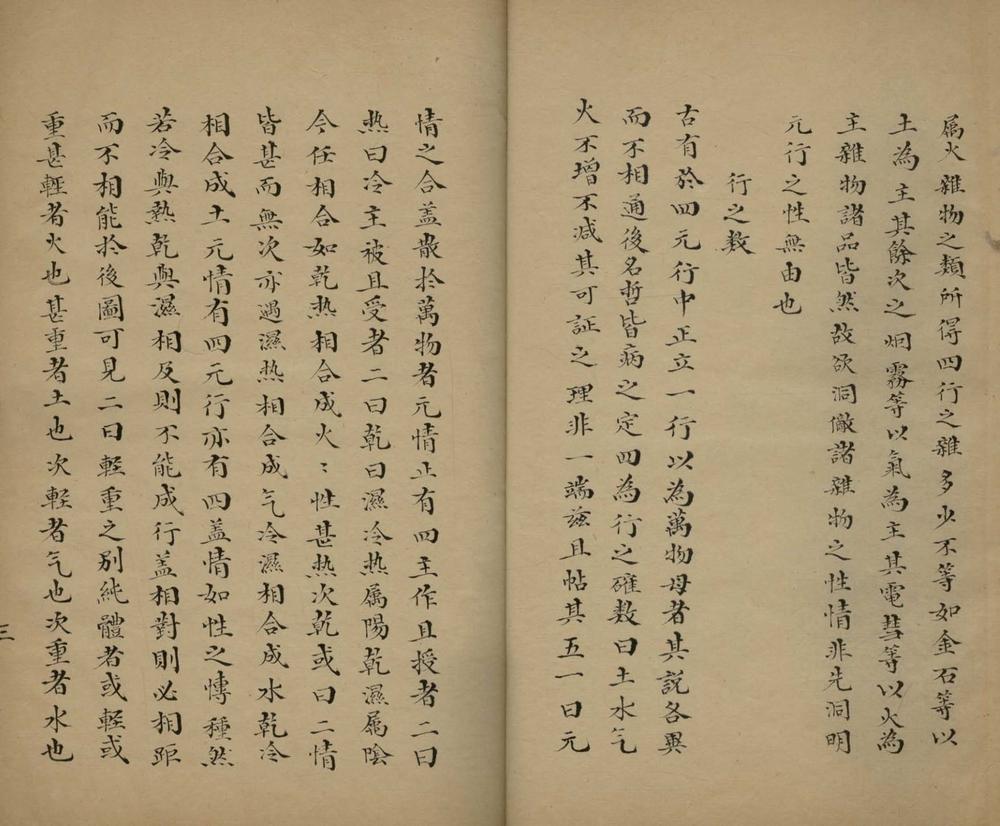 属火雜物之類所得四行之雜多少不等如金石等以
土為主其餘次之烟霧等以氣為主其電彗等以火為
主雜物諸品皆然故欲洞徹諸雜物之性情非先洞明
元行之性無由也
行之数
古有於四元行中正立一行以為萬物母者其説各異
而不相通後名哲皆病之定四為行之確数曰土水气
火不增不减其可証之理非一端兹且帖其五一曰元
情之合盖散於萬物者元情止有四主作且授者二曰
热曰冷主被且受者二曰乾曰濕冷热属陽乾濕属陰
今任相合如乾热相合成火〻性甚热次乾或曰二情
皆甚而無次亦遇濕热相合成气冷濕相合成水乾冷
相合成土元情有四元行亦有四盖情如性之慱種然
若冷與熱乾與濕相反則不能成行盖相對則必相距
而不相能於後圖可見二曰輕重之别純體者或輕或
重甚輕者火也甚重者土也次輕者气也次重者水也
三